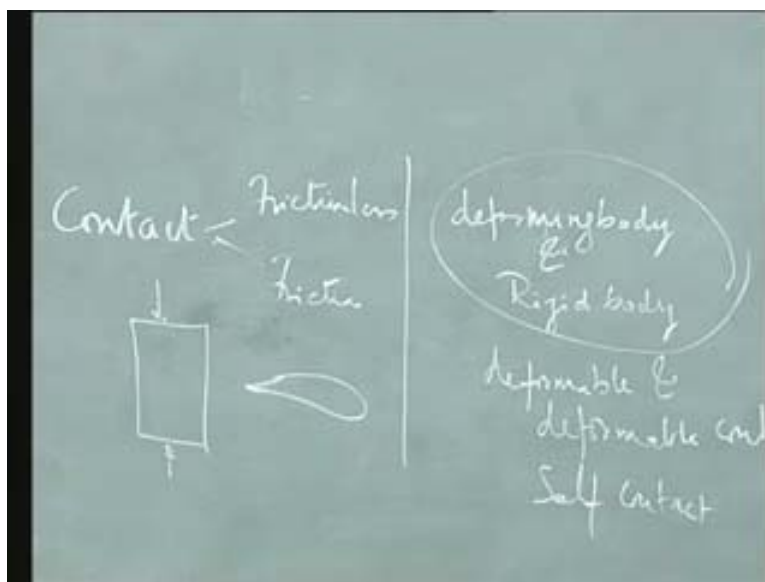 Contact
Frictionless
Friction
deforming body
&
Rigid body
deformable &
deformable cont
Self contact